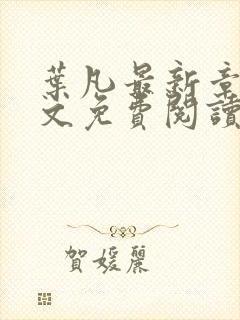 葉凡最新章
文免費閱讀
賀媛麗